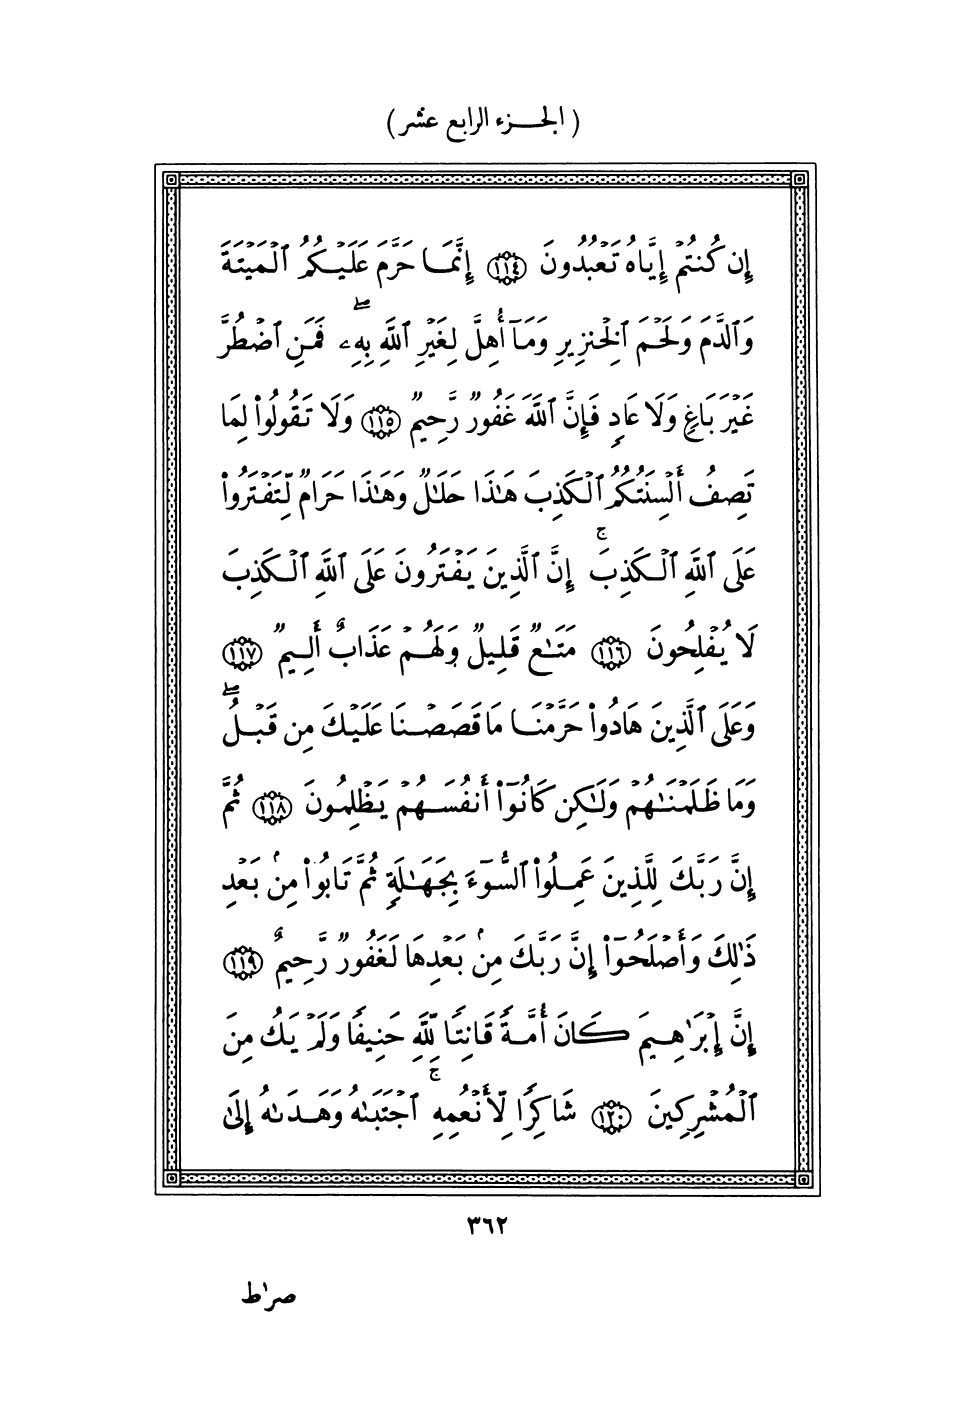 ( الجزء الرابع عشر )
إِن كُنتُمْ إِيَّاهُ تَعْبُدُونَ ﴿١١٤﴾ إِنَّمَا حَرَّمَ عَلَيْكُمُ ٱلْمَيْتَةَ
وَٱلدَّمَ وَلَحْمَ ٱلْخِنزِيرِ وَمَآ أُهِلَّ لِغَيْرِ ٱللَّهِ بِهِۦ ۖ فَمَنِ ٱضْطُرَّ
غَيْرَ بَاغٍ وَلَا عَادٍ فَإِنَّ ٱللَّهَ غَفُورٌ رَّحِيمٌ ﴿١١٥﴾ وَلَا تَقُولُوا۟ لِمَا
تَصِفُ أَلْسِنَتُكُمُ ٱلْكَذِبَ هَـٰذَا حَلَـٰلٌ وَهَـٰذَا حَرَامٌ لِّتَفْتَرُوا۟
عَلَى ٱللَّهِ ٱلْكَذِبَ ۚ إِنَّ ٱلَّذِينَ يَفْتَرُونَ عَلَى ٱللَّهِ ٱلْكَذِبَ
لَا يُفْلِحُونَ ﴿١١٦﴾ مَتَـٰعٌ قَلِيلٌ وَلَهُمْ عَذَابٌ أَلِيمٌ ﴿١١٧﴾
وَعَلَى ٱلَّذِينَ هَادُوا۟ حَرَّمْنَا مَا قَصَصْنَا عَلَيْكَ مِن قَبْلُ ۖ
وَمَا ظَلَمْنَـٰهُمْ وَلَـٰكِن كَانُوٓا۟ أَنفُسَهُمْ يَظْلِمُونَ ﴿١١٨﴾ ثُمَّ
إِنَّ رَبَّكَ لِلَّذِينَ عَمِلُوا۟ ٱلسُّوٓءَ بِجَهَـٰلَةٍ ثُمَّ تَابُوا۟ مِنۢ بَعْدِ
ذَٰلِكَ وَأَصْلَحُوٓا۟ إِنَّ رَبَّكَ مِنۢ بَعْدِهَا لَغَفُورٌ رَّحِيمٌ ﴿١١٩﴾
إِنَّ إِبْرَٰهِيمَ كَانَ أُمَّةً قَانِتًا لِّلَّهِ حَنِيفًا وَلَمْ يَكُ مِنَ
ٱلْمُشْرِكِينَ ﴿١٢٠﴾ شَاكِرًا لِّأَنْعُمِهِ ۚ ٱجْتَبَىٰهُ وَهَدَىٰهُ إِلَىٰ
٣٦٢
صرٰط